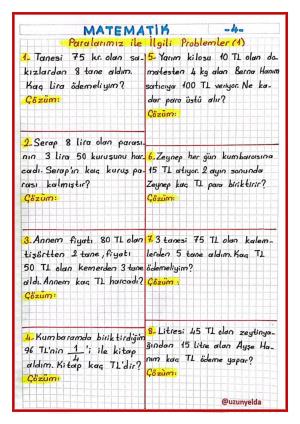 MATEMATİK -4-
Paralarımız ile İlgili Problemler (1)
1- Tanesi 75 kr. olan sa-
kızlardan 8 tane aldım.
Kaç lira ödemeliyim?
Çözüm:
2- Serap 8 lira olan parası-
nın 3 lira 50 kuruşunu har-
cadı. Serap'ın kaç kuruş pa-
rası kalmıştır?
Çözüm:
3- Annem fiyatı 80 TL olan
tişörtten 2 tane, fiyatı
50 TL olan kemerden 3 tane
aldı. Annem kaç TL harcadı?
Çözüm:
4- Kumbaramda biriktirdiğim
96 TL'nin 1/4 'i ile kitap
aldım. Kitap kaç TL'dir?
Çözüm:
5- Yarım kilosu 10 TL olan do-
matesten 4 kg alan Berna Hanım
satıcıya 100 TL veriyor. Ne ka-
dar para üstü alır?
Çözüm:
6- Zeynep her gün kumbarasına
15 TL atıyor. 2 ayın sonunda
Zeynep kaç TL para biriktirir?
Çözüm:
7- 3 tanesi 75 TL olan kalem-
lerden 5 tane aldım. Kaç TL
ödemeliyim?
Çözüm:
8- Litresi 45 TL olan zeytinya-
ğından 15 litre alan Ayşe Ha-
nım kaç TL ödeme yapar?
Çözüm:
@uzunyelda